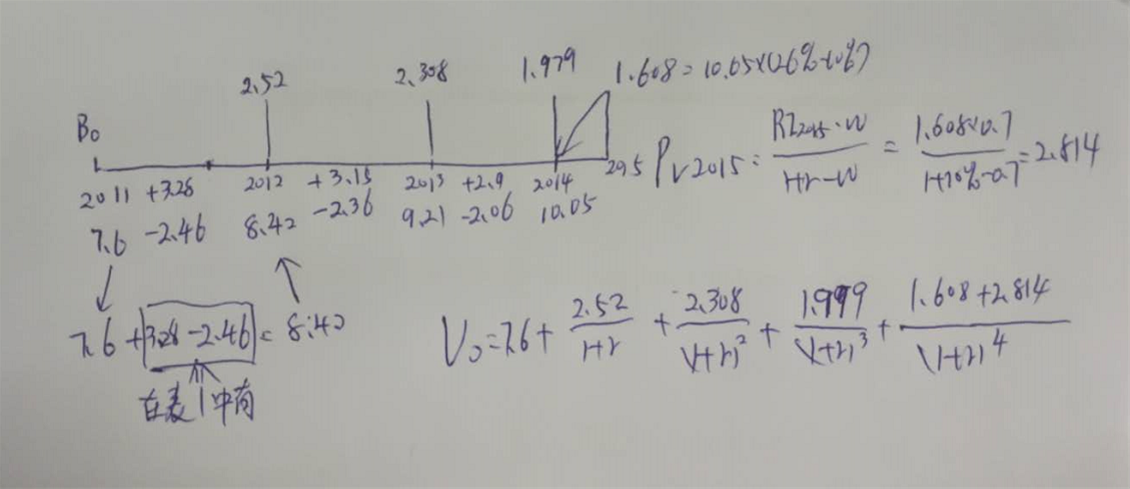 2.52 2.308 1.979 1.608 = 10.05×(26%-10%)
B₀
2011 +3.28 2012 +3.15 2013 +2.9 2014 2015
7.6 -2.46 8.42 -2.36 9.21 -2.06 10.05
PV2015 = RI2015·W / 1+r-W = 1.608×0.7 / 1+10%-0.7 = 2.814
7.6 + 3.28 - 2.46 = 8.42
在表1中有
V₀ = 7.6 + 2.52 / 1+r + 2.308 / (1+r)² + 1.979 / (1+r)³ + 1.608+2.814 / (1+r)⁴